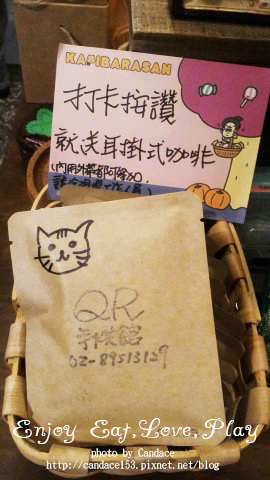 KAPIBARASAN
打卡按讚
就送耳掛式咖啡
(內用外帶都可參加,
QR
手作館
02-89513127
Enjoy Eat,Love,Play
photo by Candace
http://candace153.pixnet.net/blog